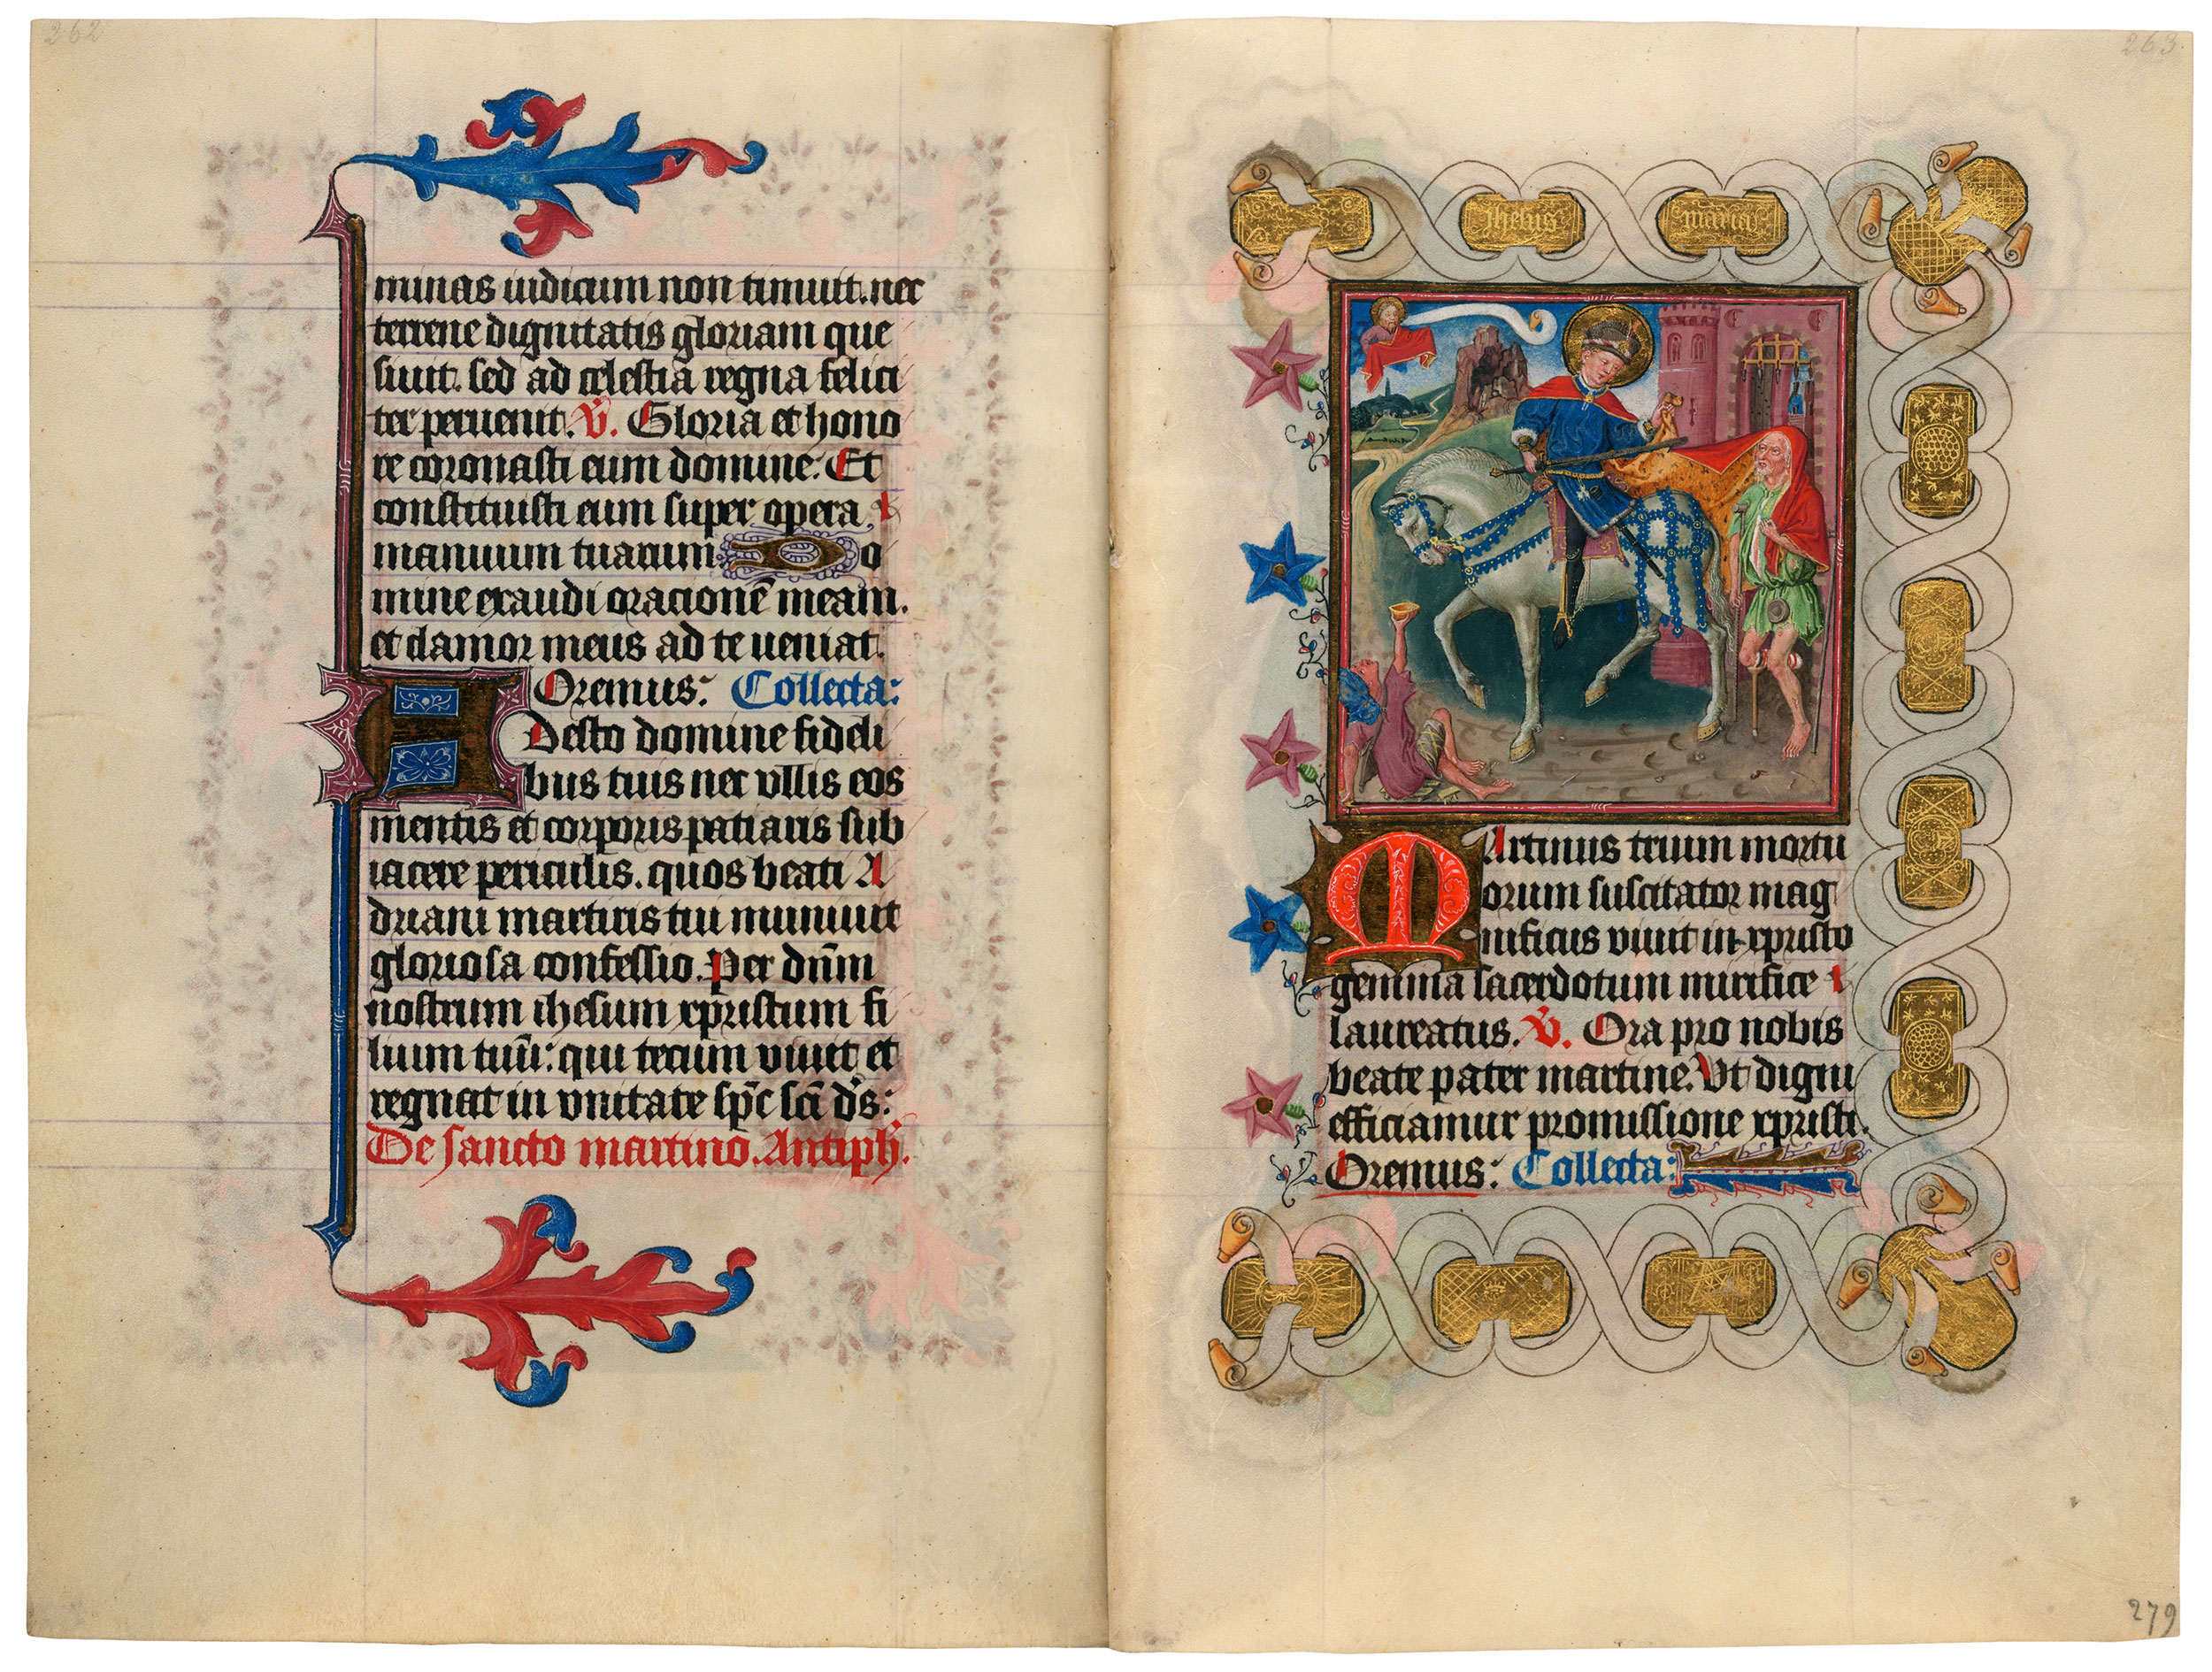 262
minas iudicum non timuit. nec
terrene dignitatis gloriam que
siuit. sed ad celestiā regna felici
ter peruenit. V̄. Gloria et hono
re coronasti eum domine. Et
constituisti eum super opera
manuum tuarum. Do
mine exaudi oracionē meam.
et clamor meus ad te ueniat.
Oremus: Collecta:
Adesto domine fideli
bus tuis nec vllis eos
mentis et corporis patiaris sub
iacere periculis. quos beati A
driani martiris tui muniuit
gloriosa confessio. Per dn̄m
nostrum ihesum xpristum fi
lium tuū: qui tecum viuit et
regnat in vnitate sp̄c sc̄i ds:
De sancto martino. Antiph̄.
263
Jhesus maria
MArtinus trium mortu
orum suscitator mag
nificus viuit in xpristo
gemma sacerdotum mirifice
laureatus. V̄. Ora pro nobis
beate pater martine. Vt digni
efficiamur promissione xpristi.
Oremus: Collecta:
279